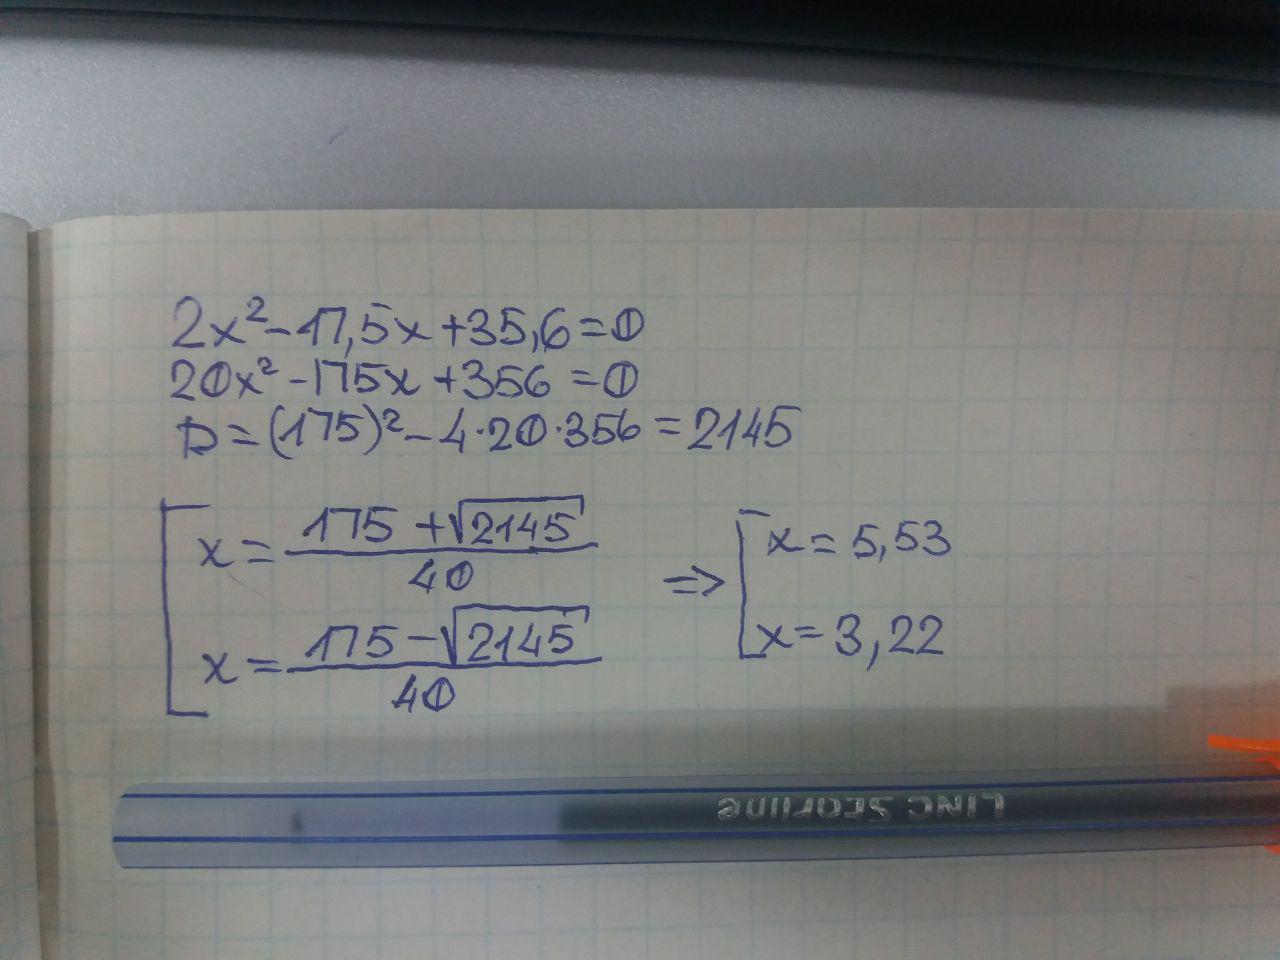 2x² - 17,5x + 35,6 = 0
20x² - 175x + 356 = 0
D = (175)² - 4·20·356 = 2145
[ x = (175 + √2145) / 40
x = (175 - √2145) / 40
=> [ x = 5,53
x = 3,22
LINC Starline